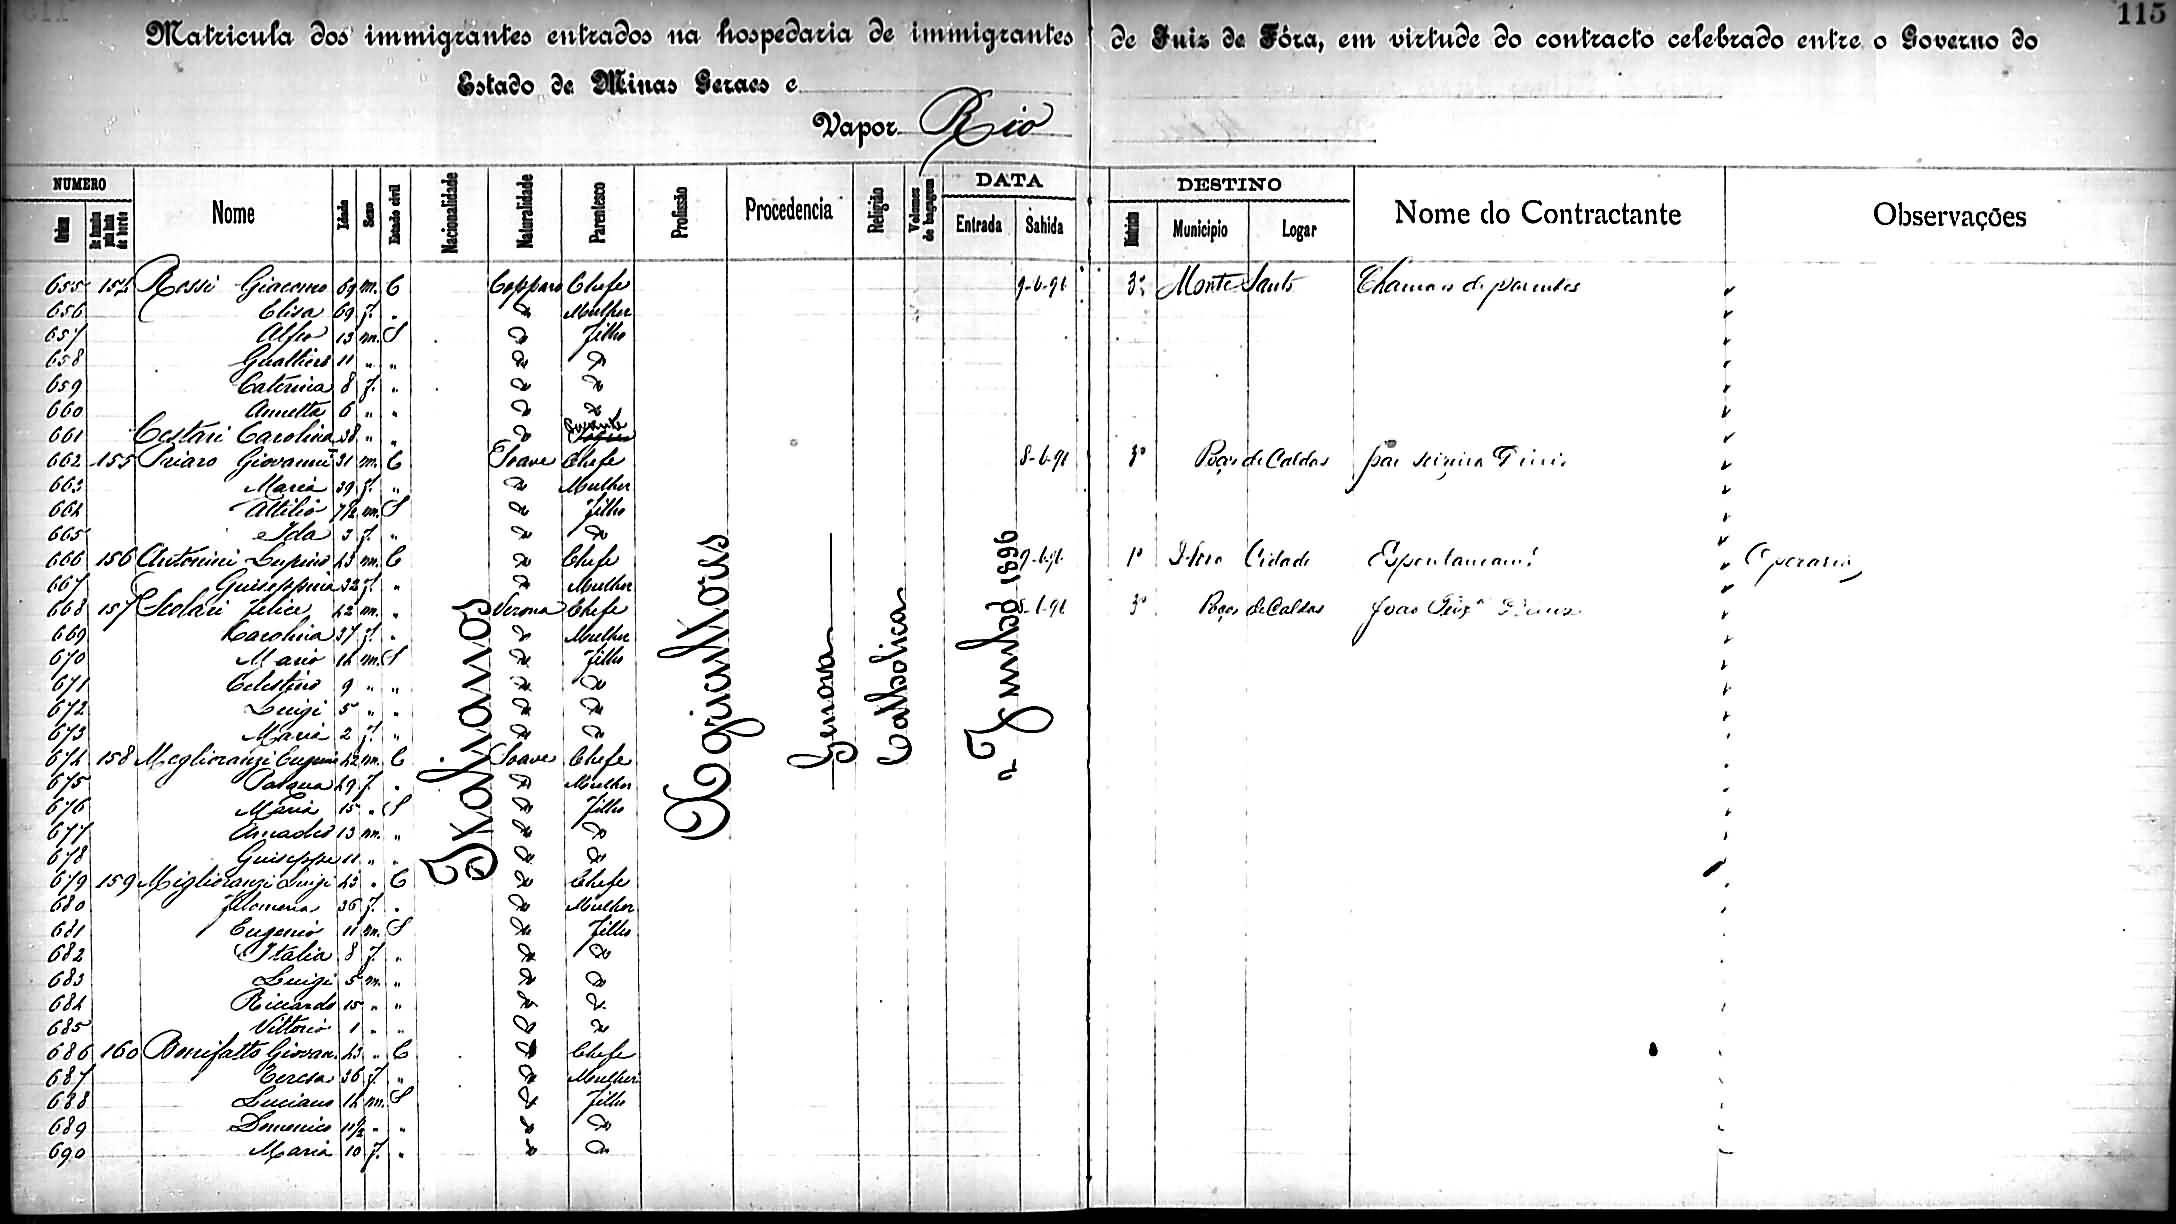 115
Matricula dos immigrantes entrados na hospedaria de immigrantes de Juiz de Fóra, em virtude do contracto celebrado entre o Governo do
Estado de Minas Geraes e
Vapor Rio
NUMERO Nome Idade Sexo Estado civil Nacionalidade Naturalidade Parentesco Profissão Procedencia Religião Volumes de bagagem DATA DESTINO Nome do Contractante Observações
Ordem Da familia pela lista de bordo Entrada Sahida Districto Municipio Logar
Italianos Agricultores Genova Catholica 2 Junho 1896
655 154 Rossi Giacomo 69 m. C Copparo Chefe 9-6-96 3º Monte Santo Chamado de parentes
656 Elisa 69 f. " " Mulher
657 Alfio 13 m. S " Filho
658 Gualtiero 11 " " " "
659 Caterina 8 f. " " "
660 Annetta 6 " " " "
661 Cestari Carolina 38 " " "
662 155 Priaro Giovanni 31 m. C Soave Chefe 8-6-96 3º Poços de Caldas
663 Maria 39 f. " " Mulher
664 Attilio 7/2 m. S " Filho
665 Ida 3 f. " " "
666 156 Antonini Lupino 43 m. C " Chefe 9-6-96 1º Cidade Operario
667 Guiseppina 32 f. " " Mulher
668 157 Scolari Felice 42 m. " Verona Chefe 8-6-96 3º Poços de Caldas João
669 Carolina 37 f. " " Mulher
670 Mario 14 m. S " Filho
671 Celestino 9 " " " "
672 Luigi 5 " " " "
673 Maria 2 f. " " "
674 158 Meglioranzi Eugenio 42 m. C Soave Chefe
675 Pasqua 49 f. " " Mulher
676 Maria 15 " S " Filho
677 Amadeo 13 m. " " "
678 Guiseppe 11 " " " "
679 159 Miglioranzi Luigi 43 " C " Chefe
680 Filomena 36 f. " " Mulher
681 Eugenio 11 m. S " Filho
682 Italia 8 f. " " "
683 Luigi 5 m. " " "
684 Riccardo 15 " " " "
685 Vittorio 1 " " " "
686 160 Bonifatto Giovan. 43 " C " Chefe
687 Teresa 36 f. " " Mulher
688 Luciano 14 m. S " Filho
689 Domenico 11/2 " " " "
690 Maria 10 f. " " "